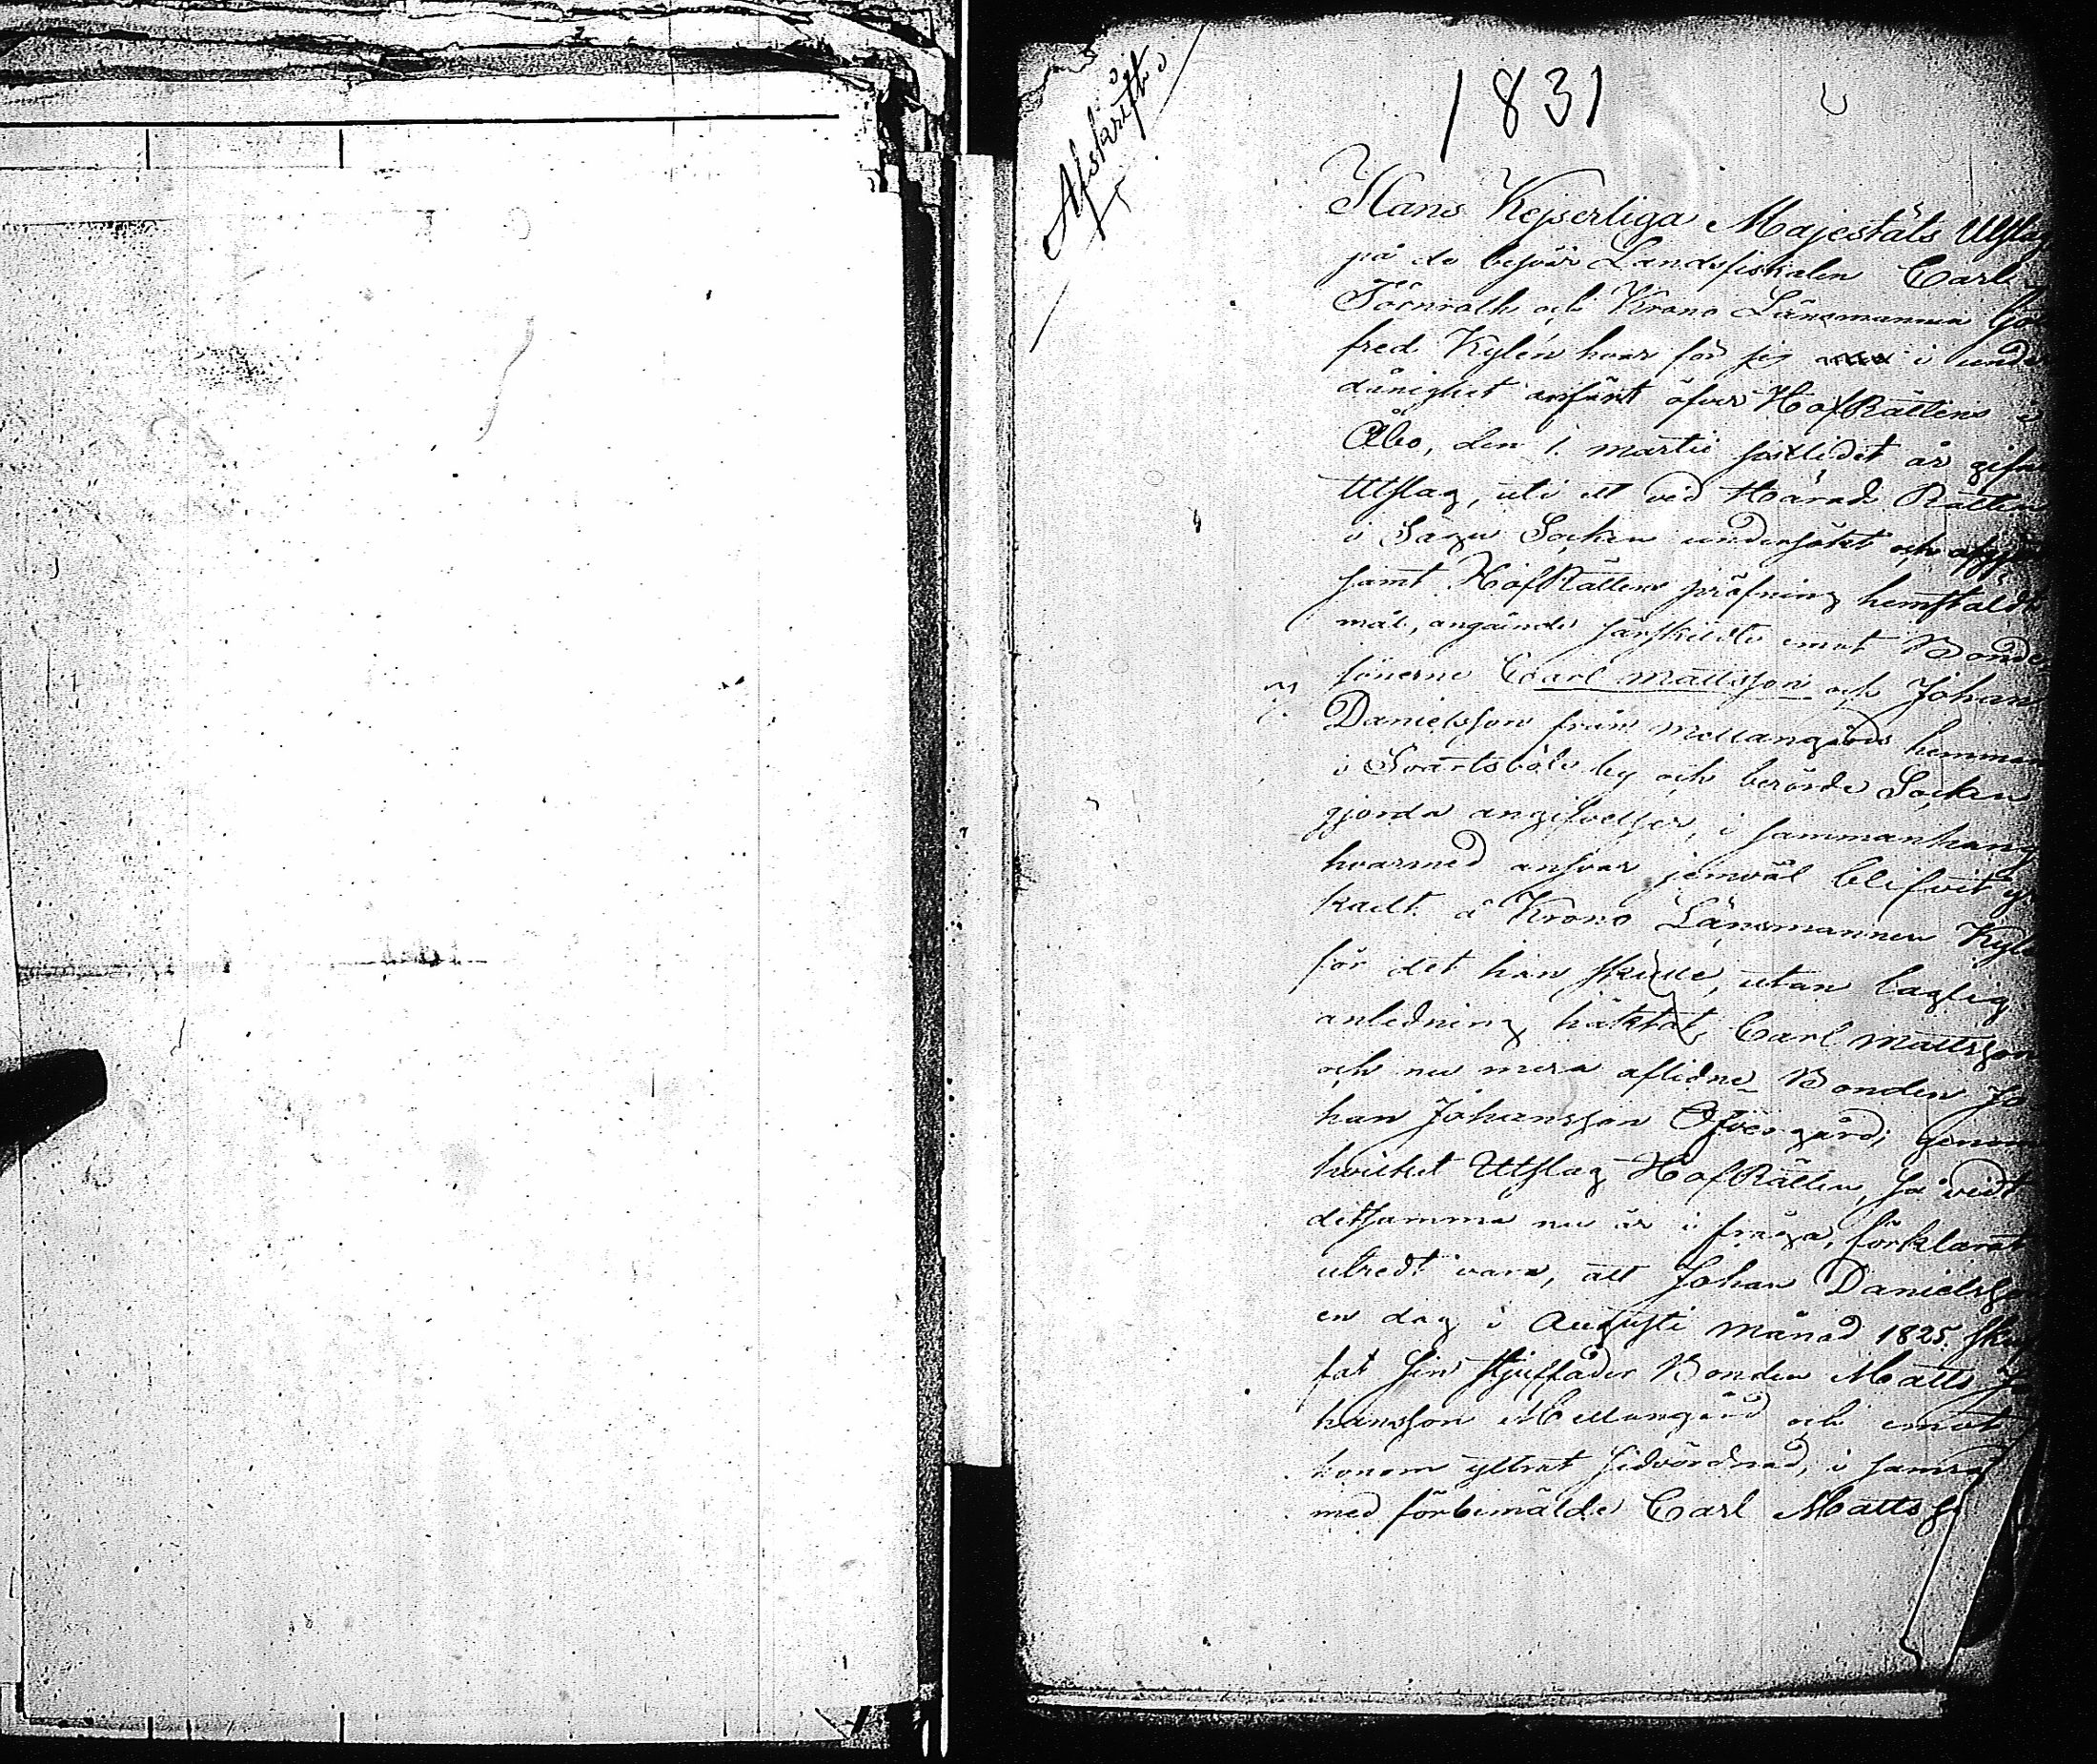 Afskrift
1831
Hans Kejserliga Majestäts Utslag
på de besvär Landsfiskalen Carl
Törnroth och Krono Länsmannen
fred Kylén hvar för sig i under
dånighet anfört öfver HofRättens i
Åbo, den 1. martii sistledit år gifn
Utslag, uti ett vid Härads Rätten
i Sagu Socken undersökt och
samt HofRättens pröfning hemstäldt
mål, angående särskilde emot Bonde
sönerne Carl Mattsson och Johan
Danielsson från Mellangårds hemman
i Svartsböle by och berörde Socken
gjorda angifvelser, i sammanhang
hvarmed ansvar jemväl blifvit yr
kadt å Krono Länsmannen Kylé
för det han skulle, utan laglig
anledning häktat Carl Mattsson
och nu mera aflidne Bonden Jo
han Johansson Öfvergård; genom
hvilket Utslag HofRätten, så vidt
detsamma nu är i fråga, förklarat
utredt vara, att Johan Danielsson
en dag i Augusti månad 1825 skuf
fat sin stjuffader Bonden Matts Jo
hansson Mellangård och emot
honom yttrat sidvördnad, i samråd
med förbemälde Carl Mattss